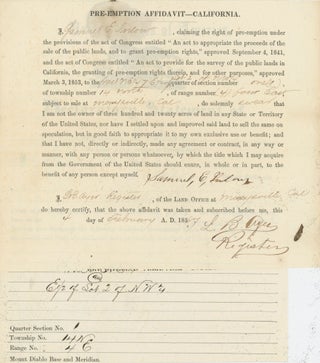 PRE-EMPTION AFFIDAVIT—CALIFORNIA.
I, Samuel C. , claiming the right of pre-emption under
the provisions of the act of Congress entitled "An act to appropriate the proceeds of the
sale of the public lands, and to grant pre-emption rights," approved September 4, 1841,
and the act entitled "An act to provide for the survey of the public lands in
California, the granting of pre-emption rights therein, and for other purposes," approved
March 3, 1853, to the quarter of section number one
of township number 14 North, of range number 4 East
subject to sale at Marysville, Cal, do solemnly swear that
I am not the owner of three hundred and twenty acres of land in any State or Territory
of the United States, nor have I settled upon and improved said land to sell the same on
speculation, but in good faith to appropriate it to my own exclusive use or benefit; and
that I have not, directly or indirectly, made any agreement or contract, in any way or
manner, with any person or persons whomsoever, by which the title which I may acquire
from the Government of the United States should enure, in whole or in part, to the
benefit of any person except myself.
Samuel C.
I, Register, of the LAND OFFICE at Marysville Cal
do hereby certify, that the above affidavit was taken and subscribed before me, this
4 day of February A. D. 186
Register
of Lot 2 of N W 4
Quarter Section No. 1
Township No. 14 N
Range No. 4 E
Mount Diablo Base and Meridian.